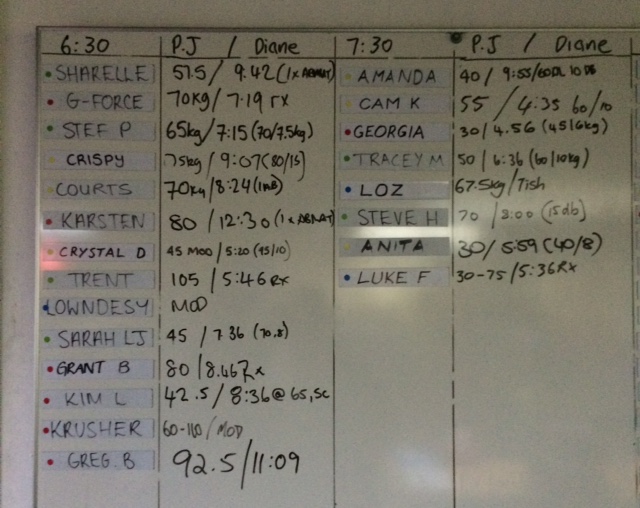 6:30 P.J / Diane 7:30 P.J / Diane
SHARELLE 57.5 / 9:42 (1x ABMAT) AMANDA 40 / 9:55/60DL 10DB
G-FORCE 70KG / 7:19 rx CAM K 55 / 4:35 60/10
STEF P 65kg / 7:15 (70/7.5kg) GEORGIA 30 / 4.56 (45/6kg)
CRISPY 75kg / 9:07 (80/15) TRACEY M 50 / 6:36 (60/10kg)
COURTS 70kg / 8:24 LOZ 67.5kg / Tish
KARSTEN 80 / 12:30 (1x ABMAT) STEVE H 70 / 8:00 (15db)
CRYSTAL D 45 MOD / 5:20 (45/10) ANITA 30 / 5:59 (40/8)
TRENT 105 / 5:46 Rx LUKE F 30-75 / 5:36 Rx
LOWNDESY MOD
SARAH LJ 45 / 7.36 (70.8)
GRANT B 80 / 8.46 Rx
KIM L 42.5 / 8:36 @ 65, SC
KRUSHER 60-110 / MOD
GREG.B 92.5 / 11:09